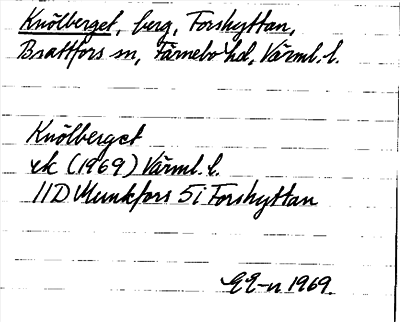 Knölberget, berg, Forshyttan,
Brattfors sn, Färnebo hd, Värml. l.
Knölberget
ek (1969) Värml. l.
11D Munkfors 5i Forshyttan
EE-n 1969.